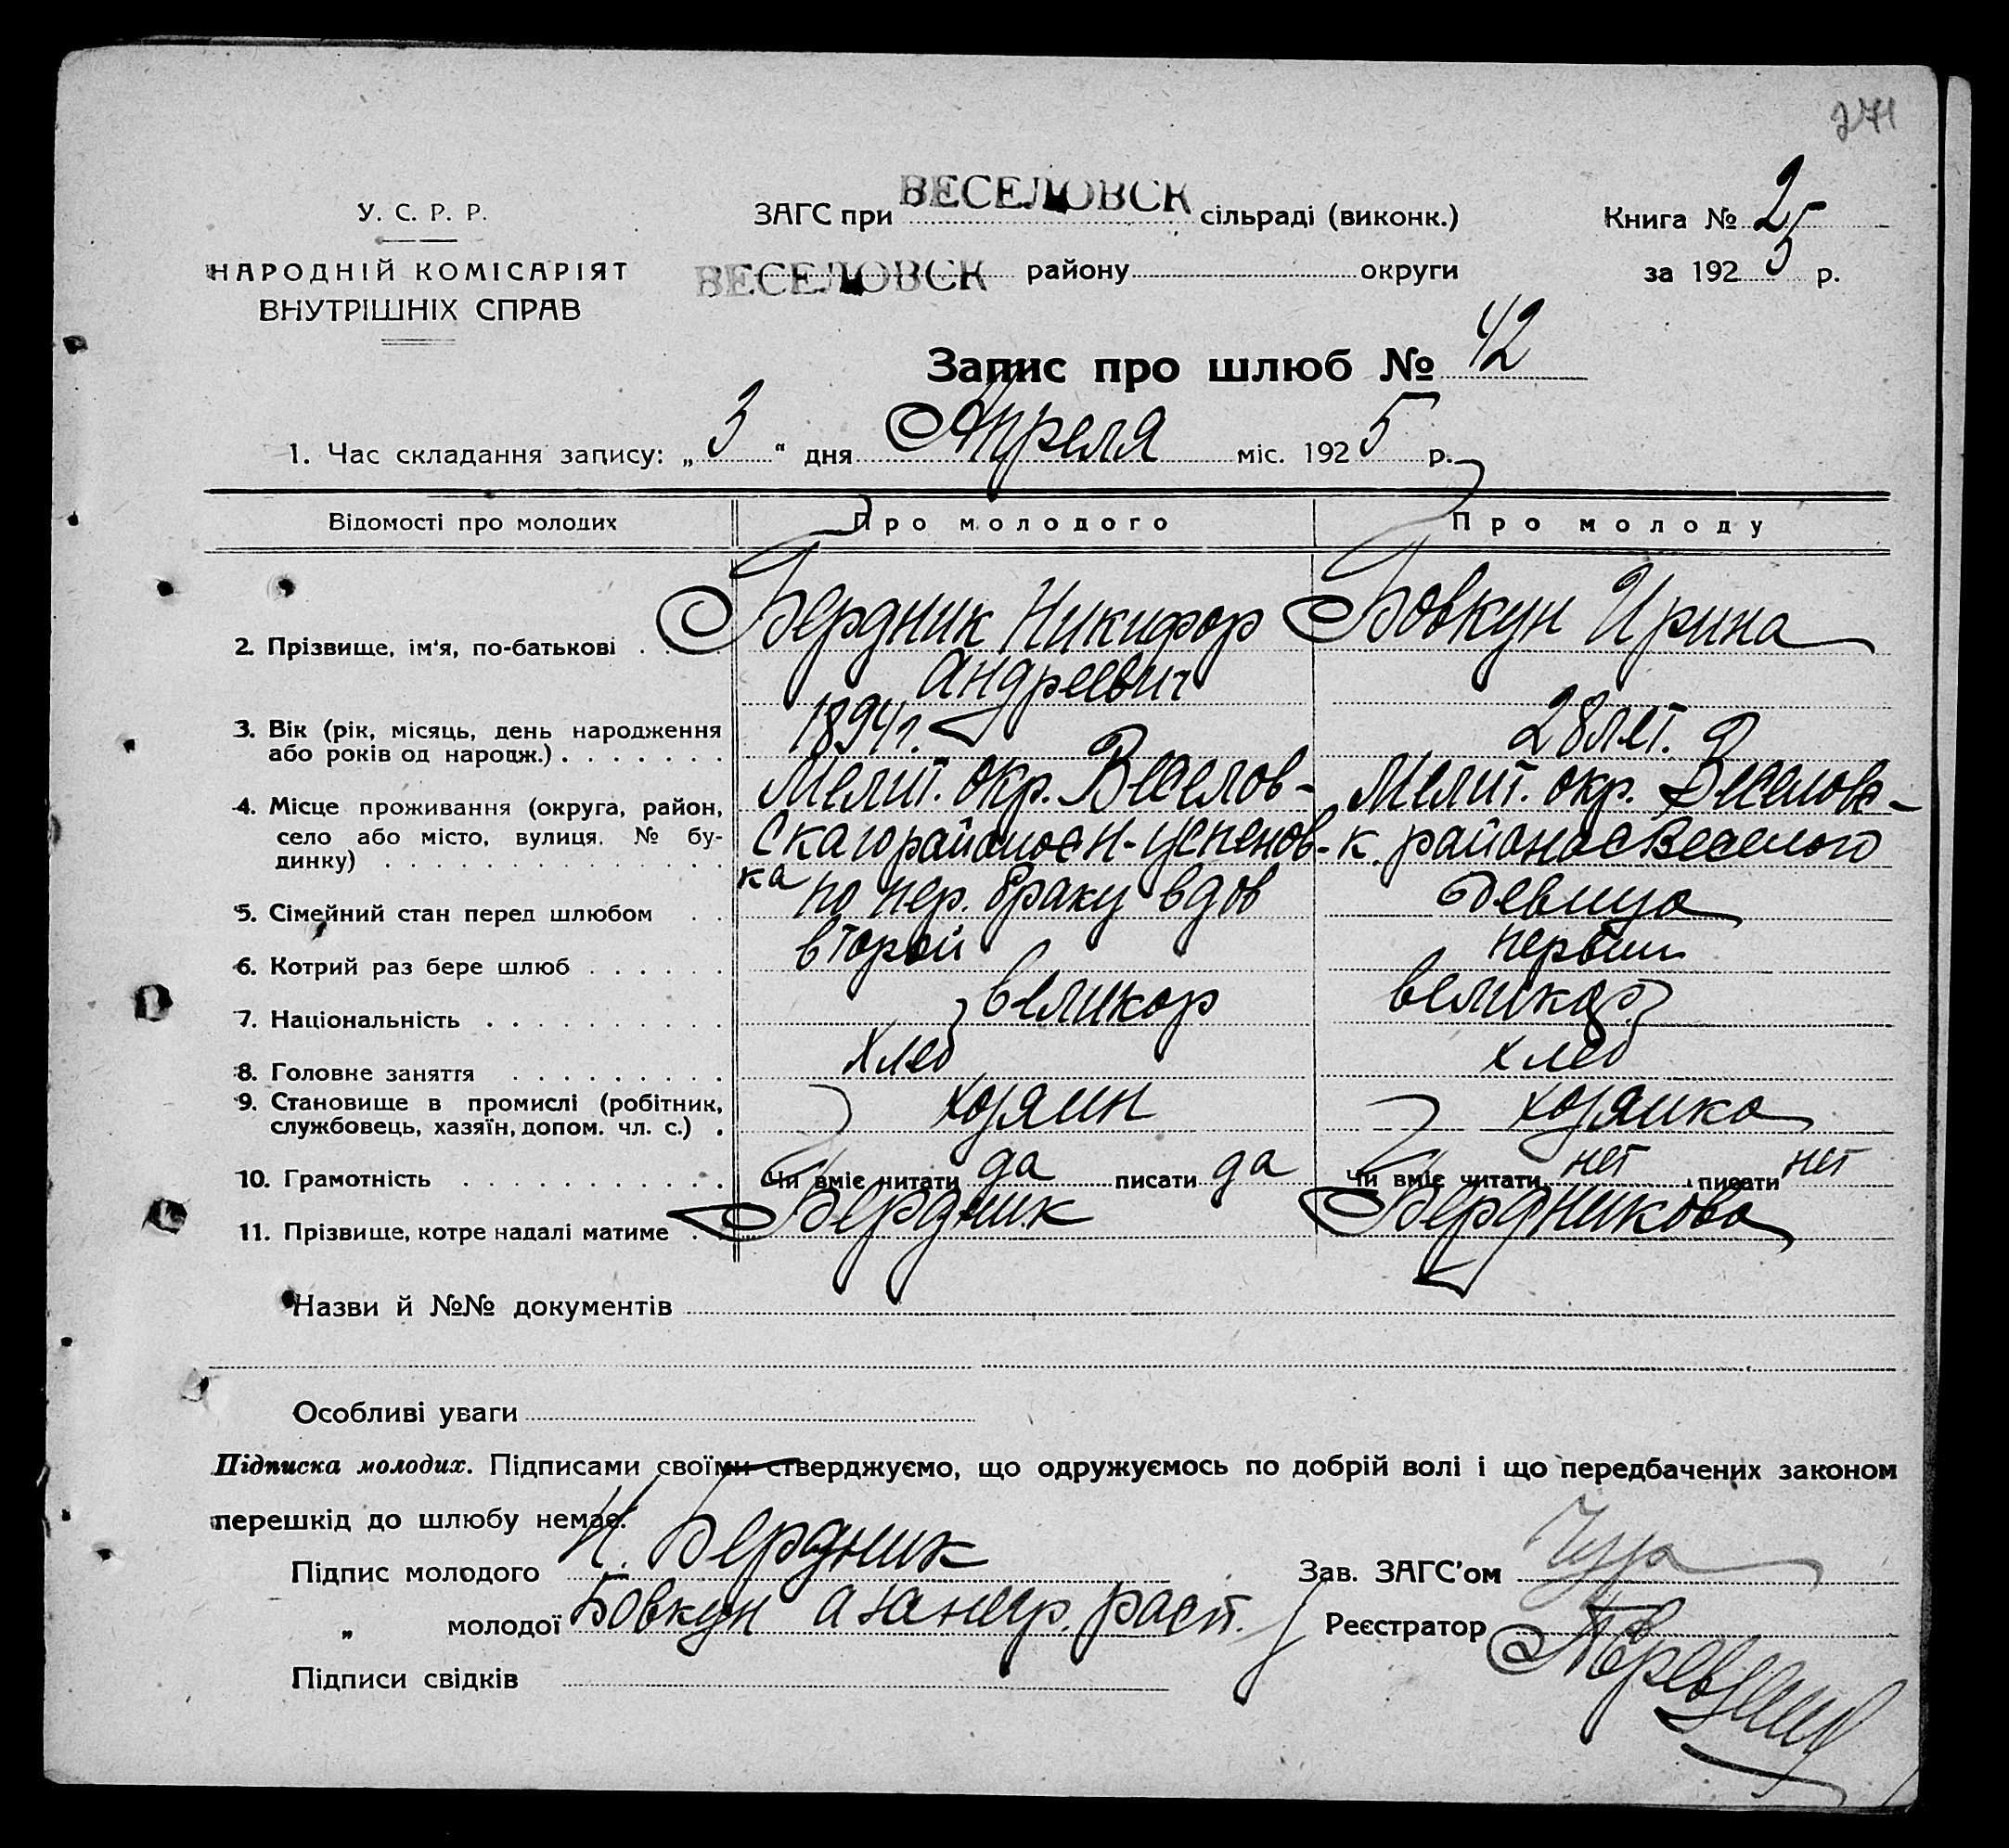 271
У. С. Р. Р.
НАРОДНІЙ КОМІСАРІЯТ
ВНУТРІШНІХ СПРАВ
ЗАГС при ВЕСЕЛОВСК сільраді (виконк.)
ВЕСЕЛОВСК району округи
Книга № 2
за 1925 р.
Запис про шлюб № 42
1. Час складання запису: „3" дня Апреля міс. 1925 р.
Відомості про молодих Про молодого Про молоду
2. Прізвище, ім'я, по-батькові . . Бердник Никифор Бовкун Ирина
Андреевич
3. Вік (рік, місяць, день народження 1894 г. 28 лет.
або років од народж.) . . . . . . .
4. Місце проживання (округа, район, Мелит. окр. Веселов- Мелит. окр. Веселовс-
село або місто, вулиця. № бу- скаго района с Н-Успенов- к. района с Веселого
динку) . . . . . . . . . . . . . . ка
5. Сімейний стан перед шлюбом . . по пер. браку вдов девица
6. Котрий раз бере шлюб . . . . . . второй первый
7. Національність . . . . . . . . . . великор великор.
8. Головне заняття . . . . . . . . . хлеб хлеб
9. Становище в промислі (робітник, хозяин хозяйка
службовець, хазяїн, допом. чл. с.) .
10. Грамотність . . . . . . . . . . . Чи вміє читати да писати да Чи вміє читати нет писати нет
11. Прізвище, котре надалі матиме . . Бердник Бердникова
Назви й №№ документів
Особливі уваги
Підписка молодих. Підписами своїми стверджуємо, що одружуємось по добрій волі і що передбачених законом
перешкід до шлюбу немає.
Підпис молодого Н. Бердник
Зав. ЗАГС'ом
„ молодої Бовкун а за негр. расп.
Реєстратор
Підписи свідків